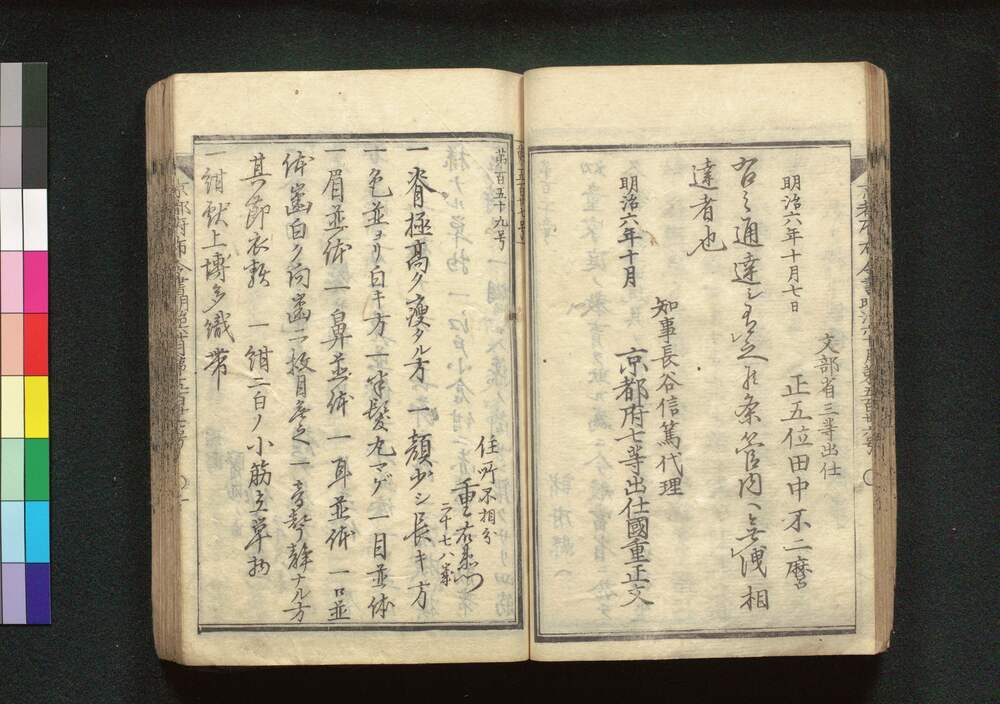 明治六年十月七日
文部省三等出仕
正五位田中不二麿
右之通達シ有之候条管内ヘ無洩相
達者也
明治六年十月
知事長谷信篤代理
京都府七等出仕國重正文
第百五十九号
住所不相分
重右衛門
二十七八歳
一脊極高ク痩タル方一顔少シ長キ方
一色並ヨリ白キ方一半髪丸マゲ一目並体
一眉並体一鼻並体一耳並体一口並
体歯白ク向歯二枚目無之一言聲静ナル方
其節衣類一紺ニ白ノ小筋立単物
一紺献上博多織帯